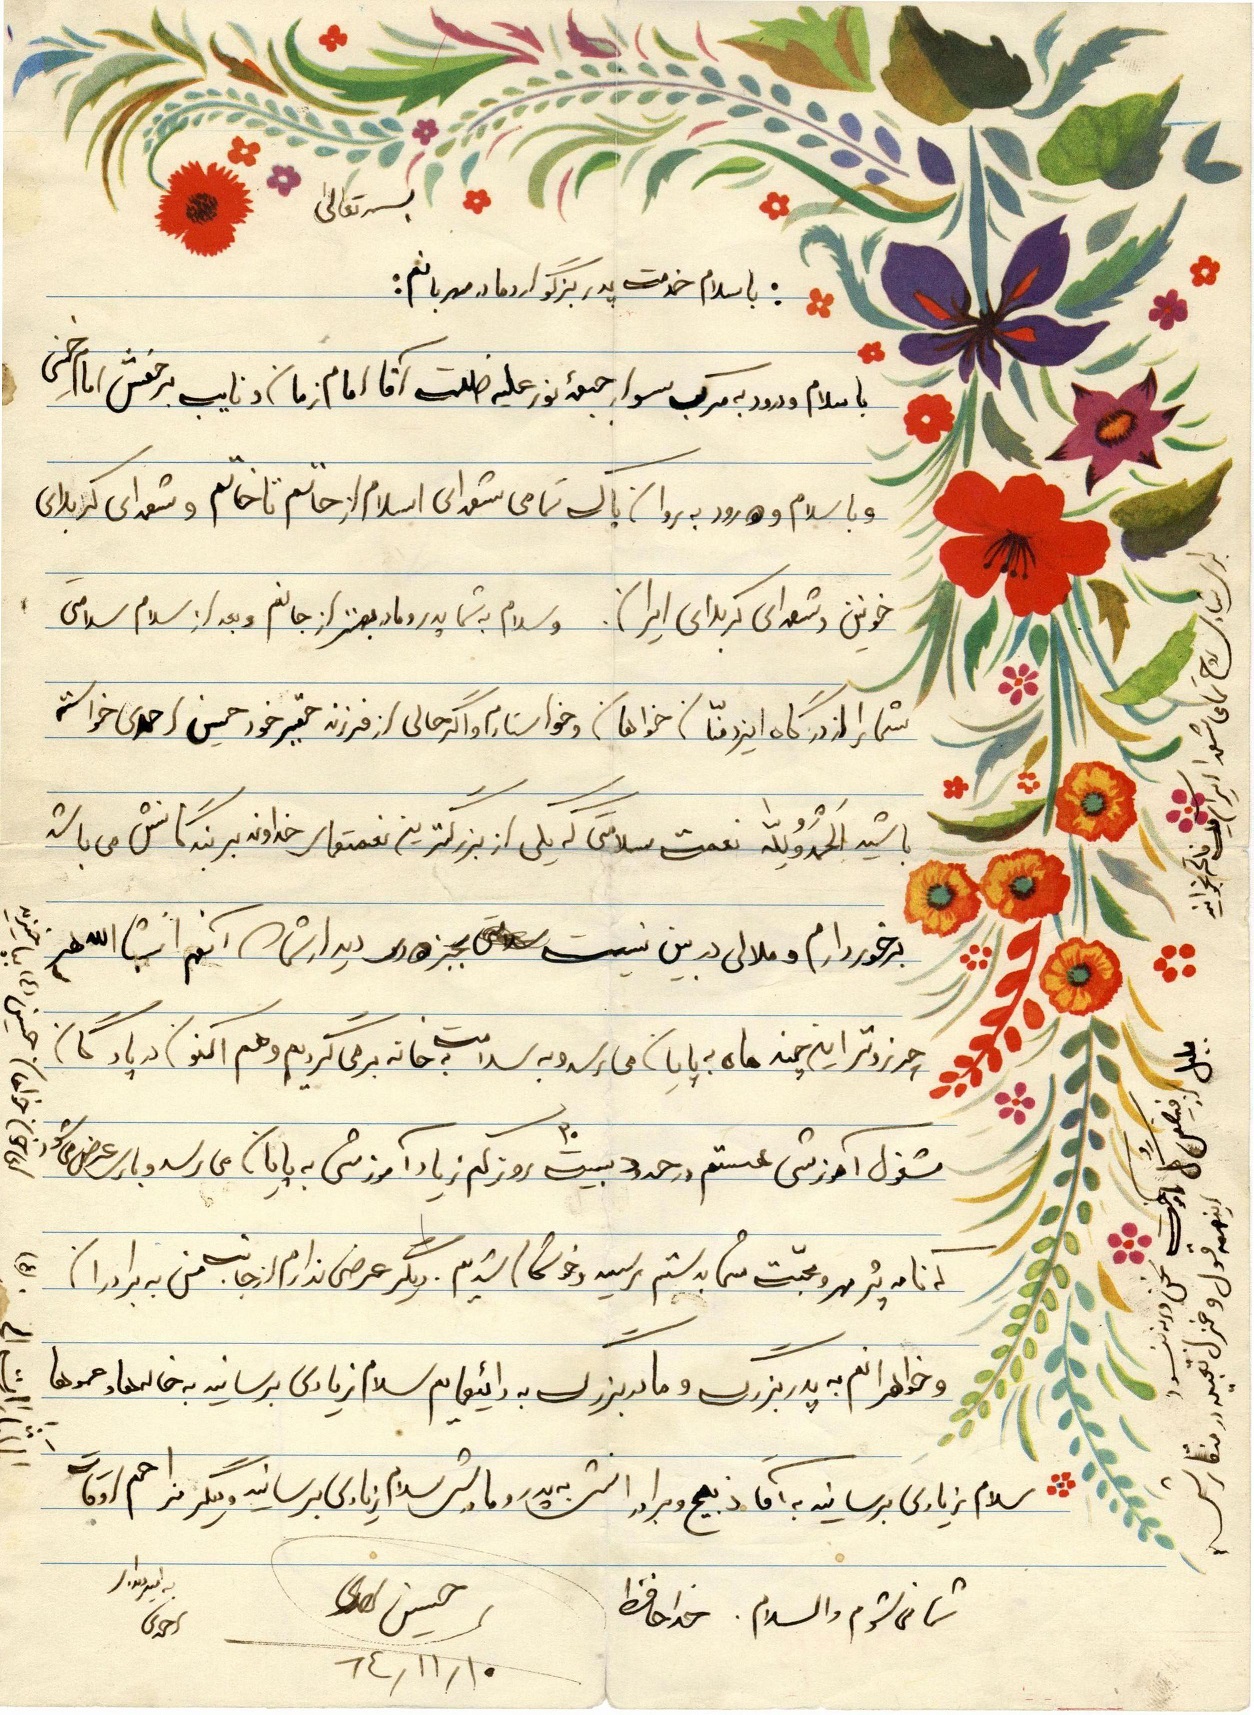 بسمه تعالی
: با سلام خدمت پدر بزرگوار و مادر مهربانم :
با سلام و درود به مرکب سوار جبههٔ نور علیه ظلمت آقا امام زمان و نایب بر حقش امام خمینی
و با سلام و درود به روان پاک تمامی شهدای اسلام از خاتم تا خاتم و شهدای کربلای
خونین و شهدای کربلای ایران. و سلام به شما پدر و مادر بهتر از جانم و بعد از سلام سلامتی
شما را از درگاه ایزد منان خواهان و خواستارم و اگر حالی از فرزند حقیر خود حسین احمدی خواسته
باشید اَلحَمدُ وَلِلّه نعمت سلامتی که یکی از بزرگترین نعمتهای خداوند بر بندگانش می باشد
برخوردارم و ملالی در بین نیست بجز دوری دیدار شما آنهم انشا الله هر
چه زودتر این چند ماه به پایان می رسد و به سلامت به خانه بر می گردیم و هم اکنون در پادگان
مشغول آموزشی هستم در حدود بیست ۲۰ روز کم زیاد آموزشی به پایان می رسد و باری عرض می شود
که نامه پُر مهر و محبّت شما بدستم رسید و خوشحال شدیم. دیگر عرضی ندارم از جانب من به برادران
و خواهرانم به پدر بزرگ و مادر بزرگ به دائیهایم سلام زیادی برسانید به خاله ها و عموها
سلام زیادی برسانید به آقا ذبیح و برادرانش به پدر و مادرش سلام زیادی برسانید دیگر مزاحم اوقات
شما نمی شوم والسلام. خداحافظ
حسین احمدی
۶۴/۱۱/۱۰
به امید دیدار
احمدی
برای شادی روح تمامی شهدا ایران فاتحه بخوانید
بلبل از فیض گل آموخت سخن ورنه نبود
اینهمه قول و غزل تعبیه در منقارش